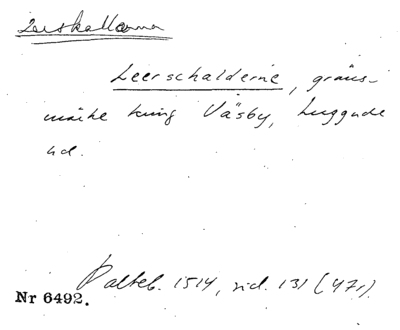 Leerskallarna
Leerschalderne, gräns-
märke kring Väsby, Luggude
hd.
Palteb. 1514, sid. 131 (47r).
Nr 6492.